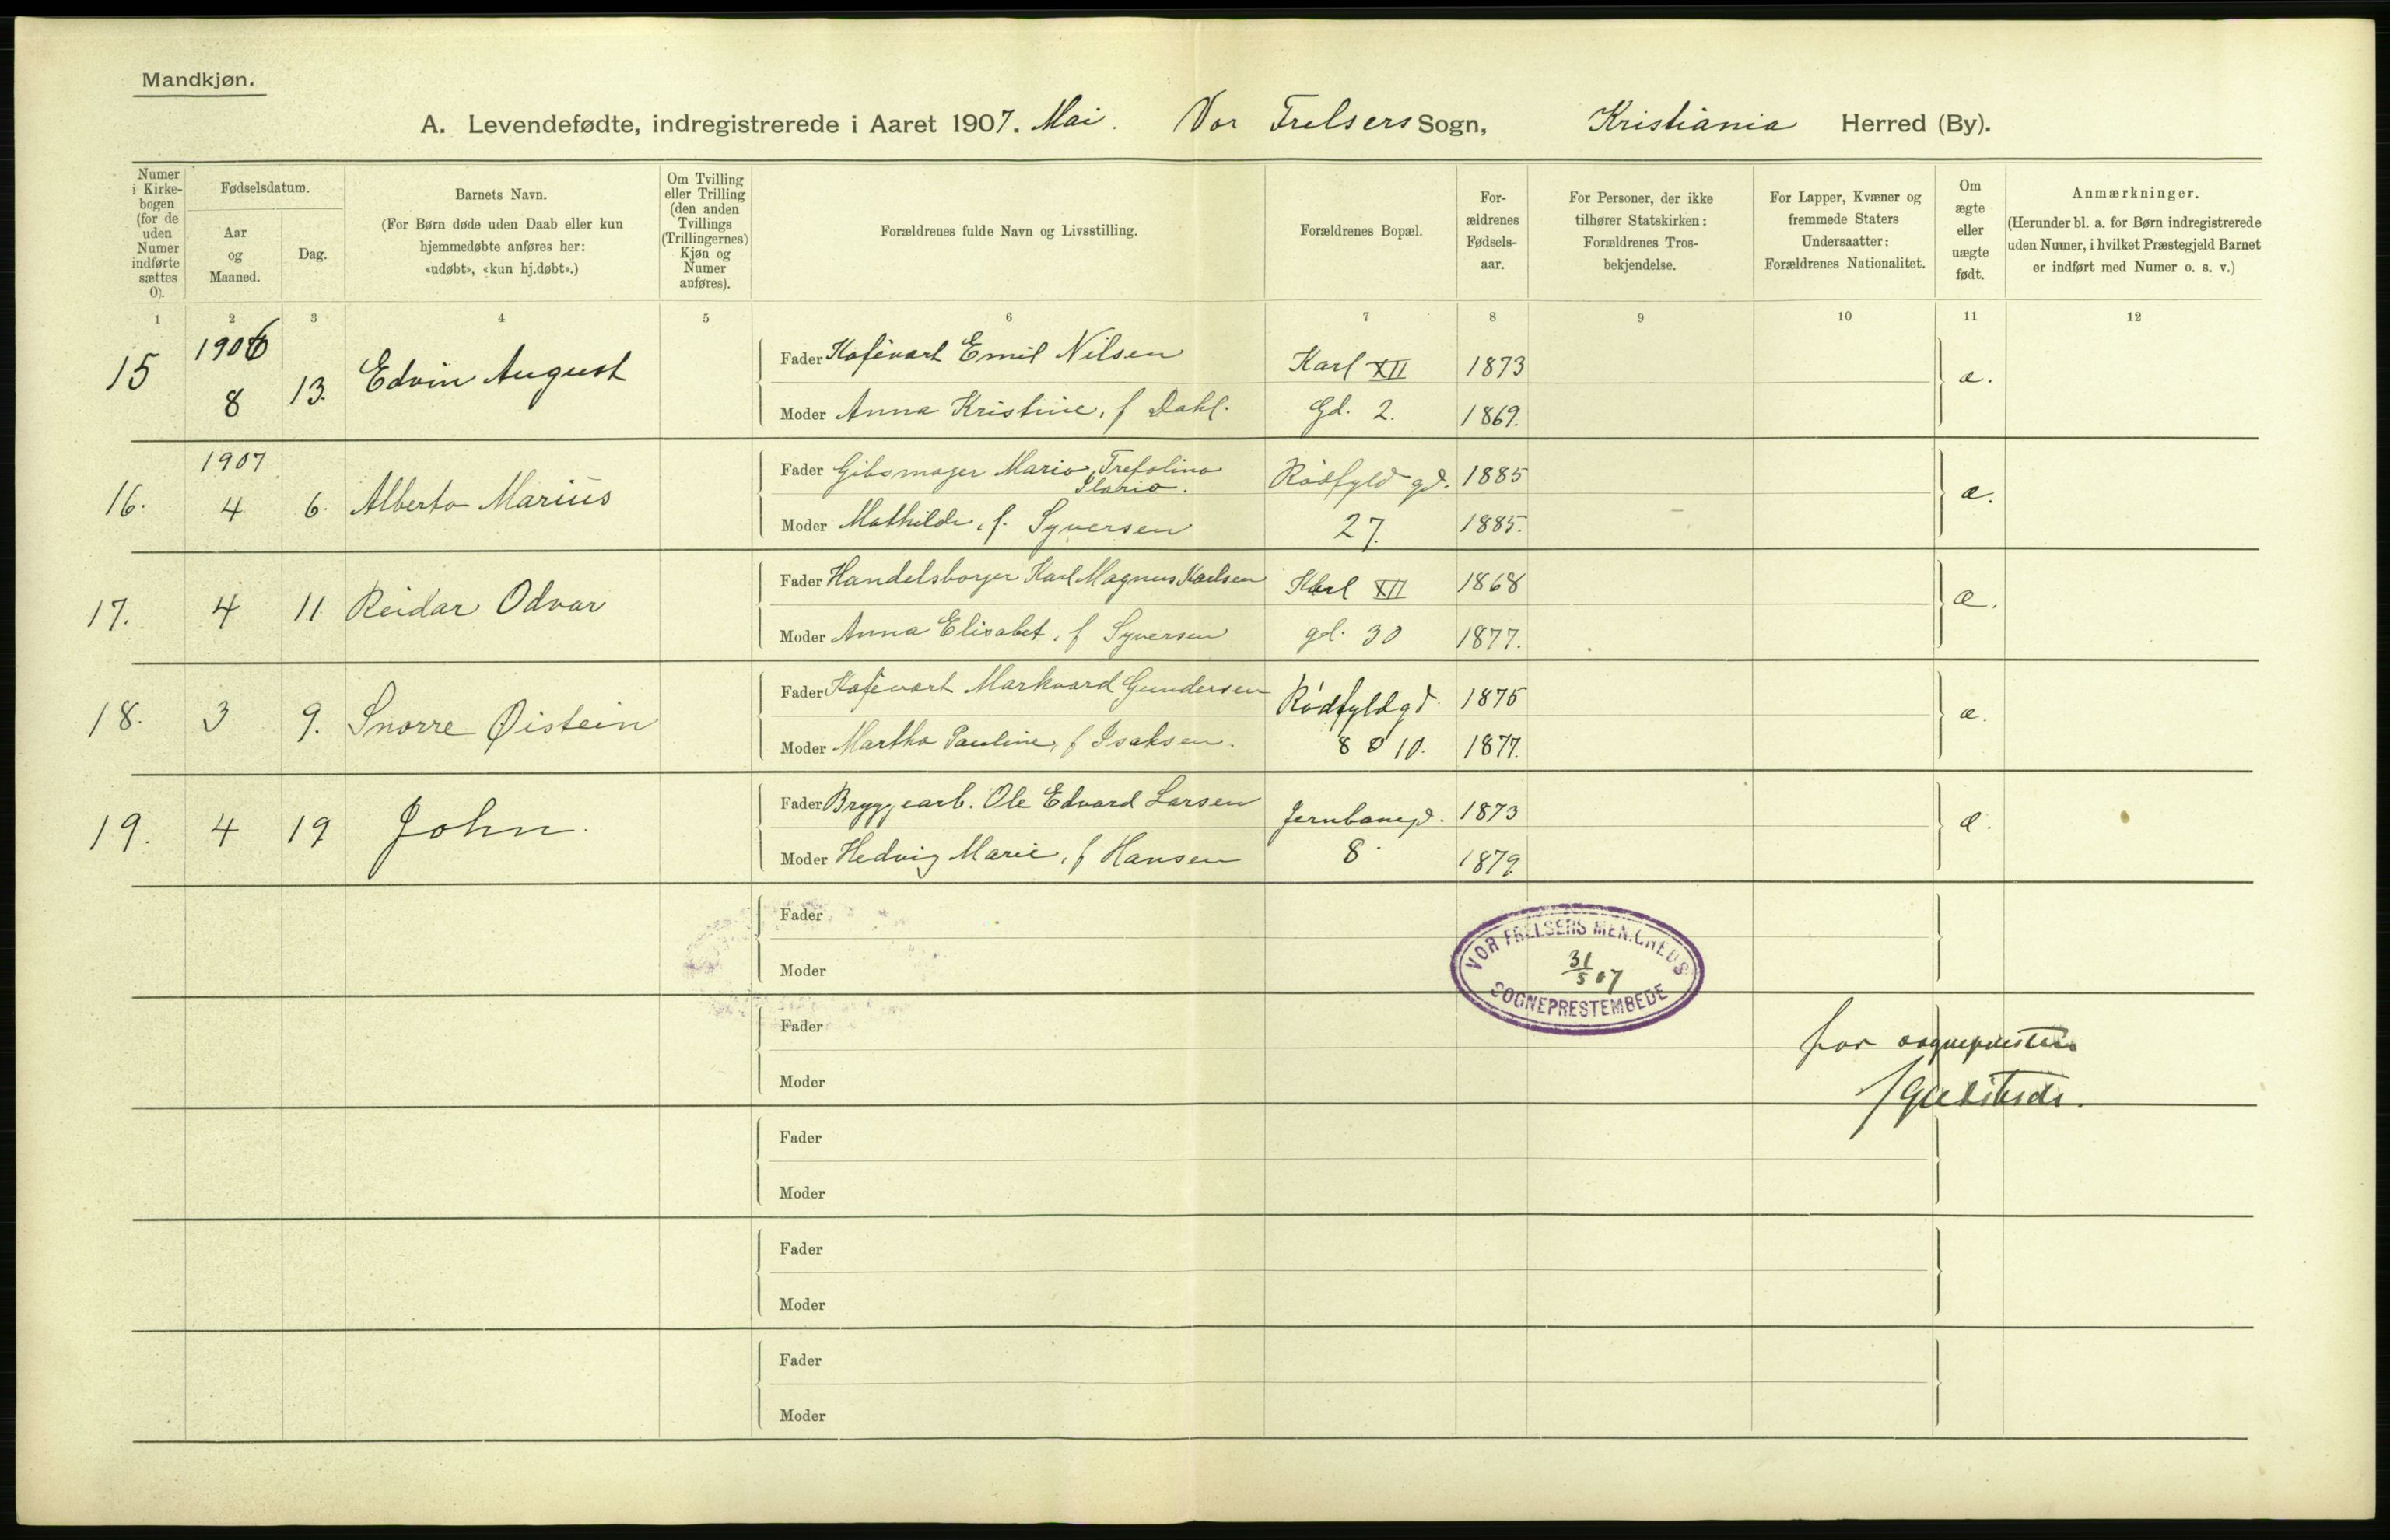 Mandkjøn.
A. Levendefødte, indregistrerede i Aaret 1907. Mai. Vor Frelsers Sogn, Kristiania Herred (By).
Numer i Kirkebogen (for de uden Numer indførte sættes 0).
Fødselsdatum.
Aar og Maaned.
Dag.
Barnets Navn.
(For Børn døde uden Daab eller kun hjemmedøbte anføres her: «udøbt», «kun hj.døbt».)
Om Tvilling eller Trilling (den anden Tvillings (Trillingernes) Kjøn og Numer anføres).
Forældrenes fulde Navn og Livsstilling.
Forældrenes Bopæl.
Forældrenes Fødselsaar.
For Personer, der ikke tilhører Statskirken: Forældrenes Trosbekjendelse.
For Lapper, Kvæner og fremmede Staters Undersaatter: Forældrenes Nationalitet.
Om ægte eller uægte født.
Anmærkninger.
(Herunder bl. a. for Børn indregistrerede uden Numer, i hvilket Præstegjeld Barnet er indført med Numer o. s. v.)
1 2 3 4 5 6 7 8 9 10 11 12
15 1906 8 13. Edvin August Fader Kafévært Emil Nilsen Karl XII 1873 æ.
Moder Anna Kristine, f Dahl. Gd. 2. 1869.
16. 1907 4 6. Alberto Marius Fader Gibsmager Mario Trefolino Ilario. Rødfyldgd. 1885 æ.
Moder Mathilde, f. Syversen 27. 1885.
17. 4 11 Reidar Odvar Fader Handelsborger Karl Magnus Karlsen Karl XII 1868 æ.
Moder Anna Elisabet, f Syversen gd. 30 1877.
18. 3 9. Snorre Øistein Fader Kafévært Markvard Gundersen Rødfyldgd. 1875 æ.
Moder Martha Pauline, f Isaksen. 8 o 10. 1877.
19. 4 19 John. Fader Bryggearb. Ole Edvard Larsen Jernbanegd. 1873 æ.
Moder Hedvig Marie, f Hansen 8. 1879.
Fader
Moder
VOR FRELSERS MENIGHEDS
31/5 07
SOGNEPRESTEMBEDE
Fader
for sognepresten
Moder
Fader
Moder
Fader
Moder
Fader
Moder